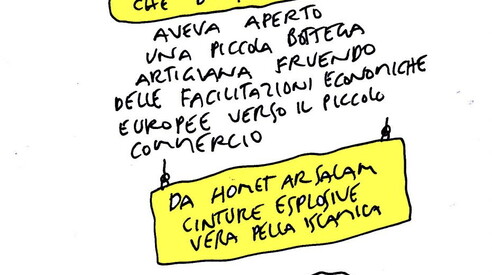 CHE
AVEVA APERTO
UNA PICCOLA BOTTEGA
ARTIGIANA FRUENDO
DELLE FACILITAZIONI ECONOMICHE
EUROPEE VERSO IL PICCOLO
COMMERCIO
DA HOMET ARSALAM
CINTURE ESPLOSIVE
VERA PELLA ISLAMICA